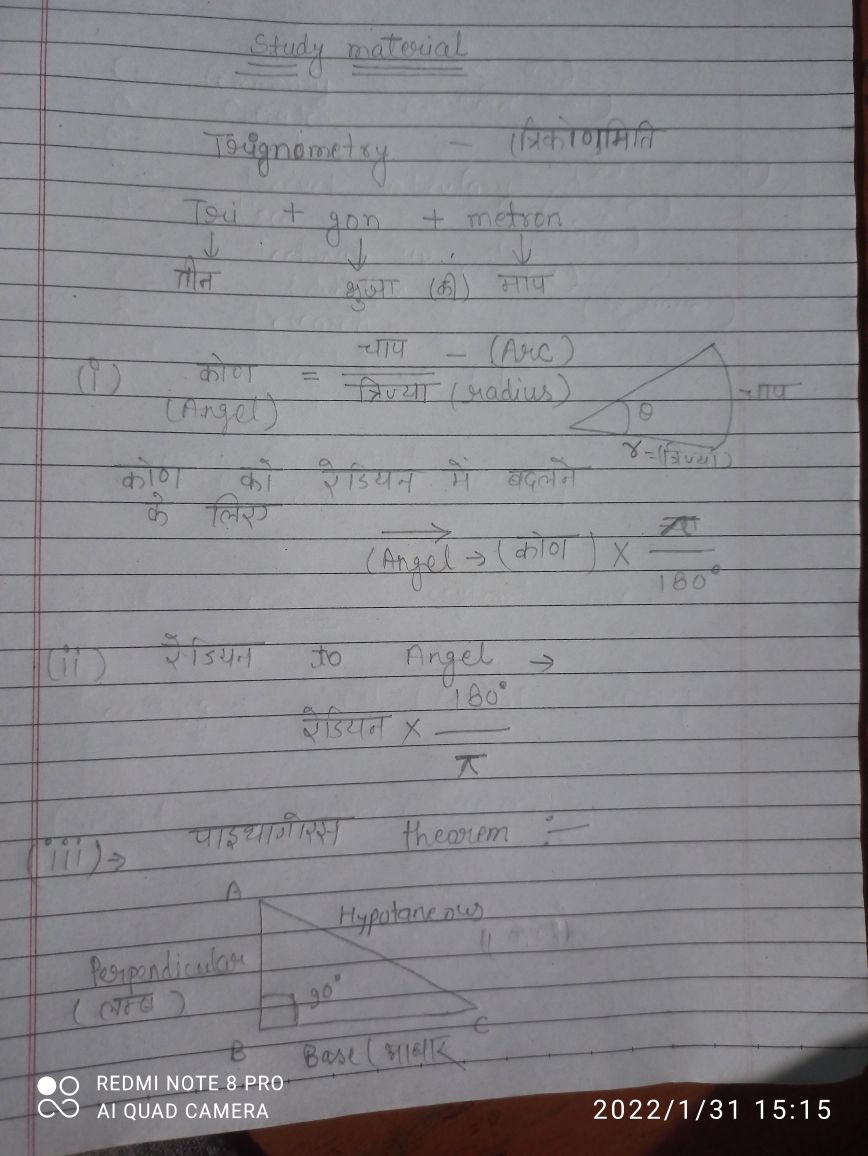 Study material
Trignometry - त्रिकोणमिति
Tri + gon + metron
↓ ↓ ↓
तीन भुजा (की) माप
चाप - (Arc)
(i) कोण = त्रिज्या (radius)
(Angel)
θ
चाप
r=(त्रिज्या)
कोण को रेडियन में बदलने
के लिए
(Angel → (कोण) × π
180°
(ii) रेडियन to Angel →
180°
रेडियन ×
π
(iii)→ पाइथागोरस theorem :-
A
Hypotaneous
Perpendicular
(लम्ब)
90°
B
C
Base (आधार
REDMI NOTE 8 PRO
AI QUAD CAMERA
2022/1/31 15:15